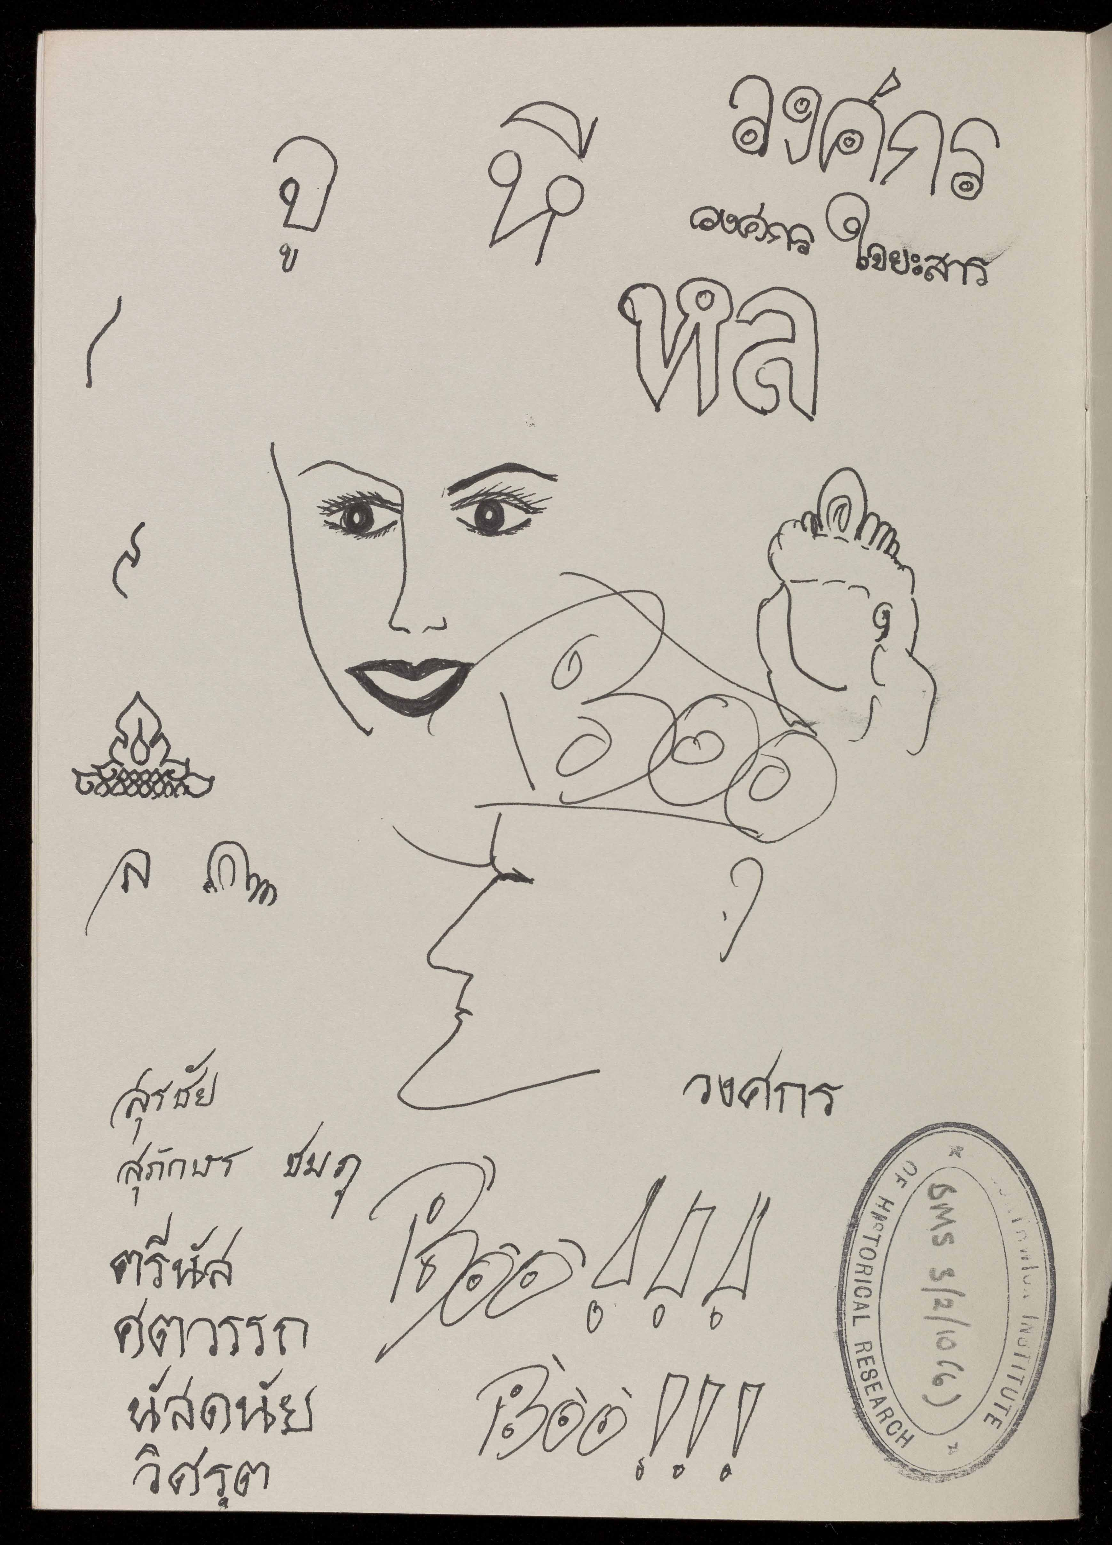 จู
หี
วงศ์กร
วงศกร ใจยะสาร
หล
Boo
ล
?
สุรชัย
วงศกร
สุภักษร ชมภู
ตรีนัส
Boo!!!
ศตวรรถ
นัสดนัย
Boo!!!
วิศรุต
INSTITUTE
OF HISTORICAL RESEARCH
BMS 3/2/10(6)